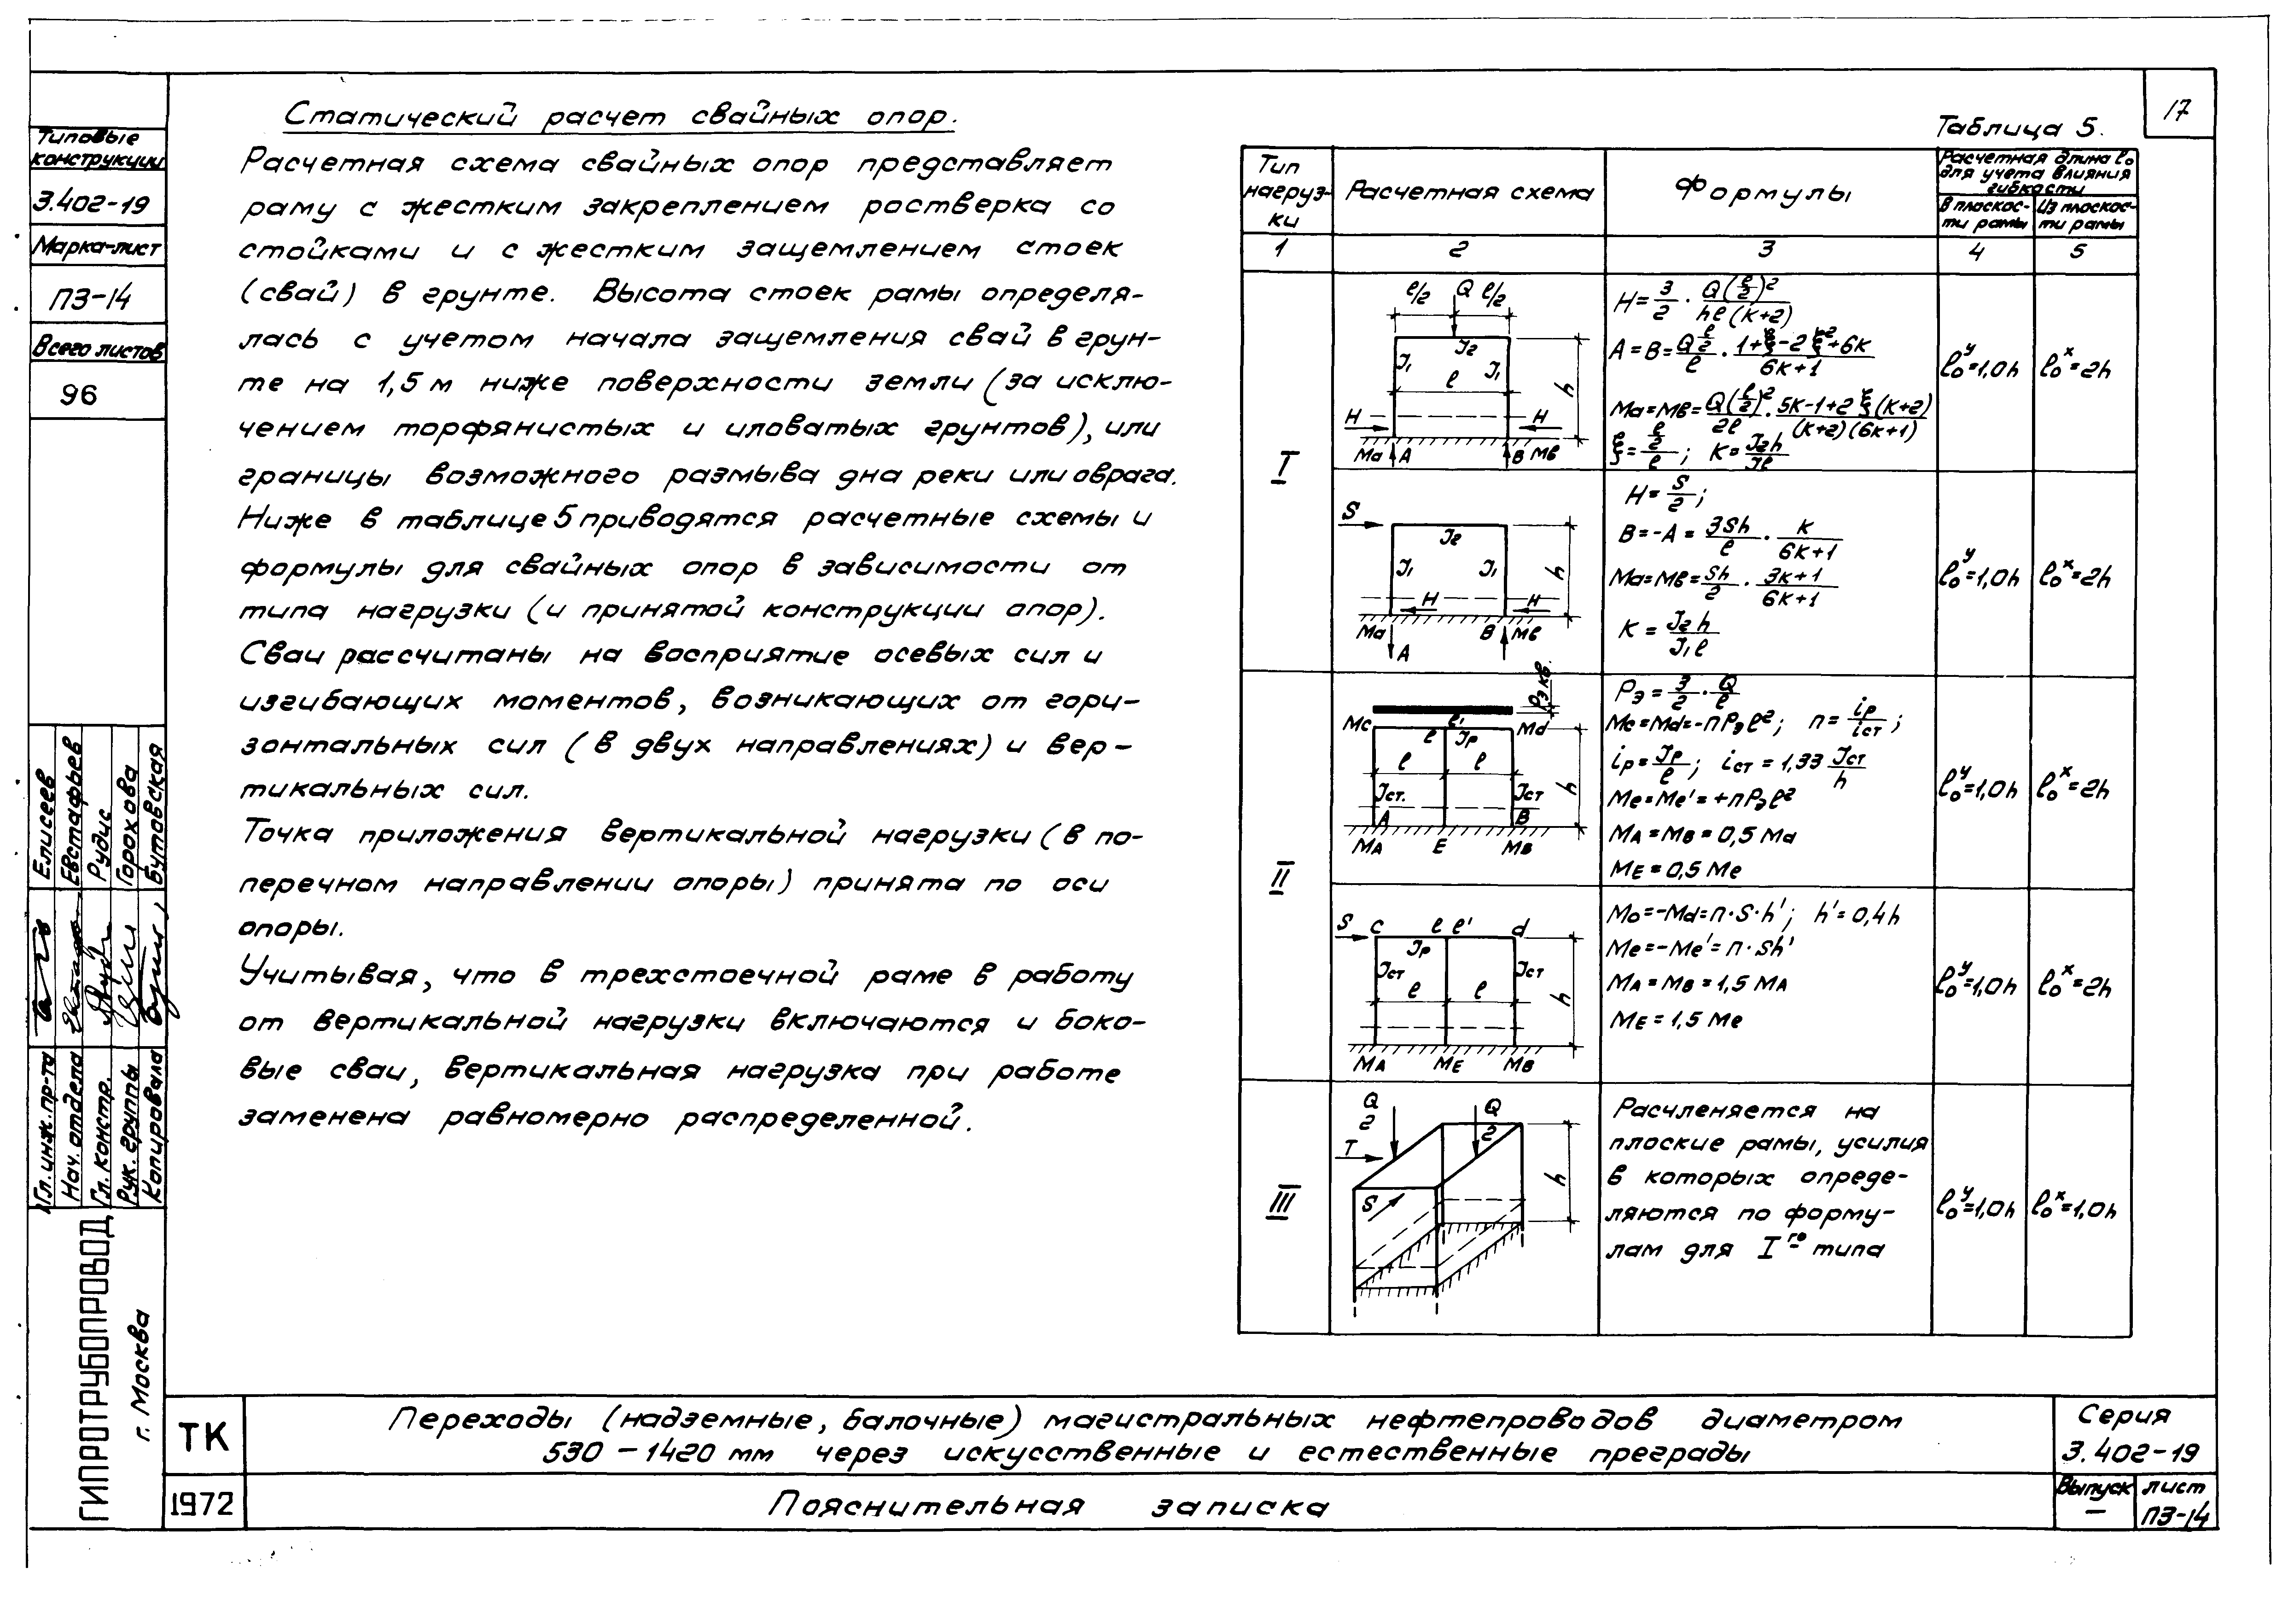 17
Типовые
конструкции
3.402-19
Марка-лист
ПЗ-14
Всего листов
96
Статический расчет свайных опор.
Расчетная схема свайных опор представляет
раму с жестким закреплением ростверка со
стойками и с жестким защемлением стоек
(свай) в грунте. Высота стоек рамы определя-
лась с учетом начала защемления свай в грун-
те на 1,5 м ниже поверхности земли (за исклю-
чением торфянистых и иловатых грунтов), или
границы возможного размыва дна реки или оврага.
Ниже в таблице 5 приводятся расчетные схемы и
формулы для свайных опор в зависимости от
типа нагрузки (и принятой конструкции опор).
Сваи рассчитаны на восприятие осевых сил и
изгибающих моментов, возникающих от гори-
зонтальных сил (в двух направлениях) и вер-
тикальных сил.
Точка приложения вертикальной нагрузки (в по-
перечном направлении опоры) принята по оси
опоры.
Учитывая, что в трехстоечной раме в работу
от вертикальной нагрузки включаются и боко-
вые сваи, вертикальная нагрузка при работе
заменена равномерно распределенной.
Таблица 5.
Тип
нагруз-
ки
Расчетная схема
Формулы
Расчетная длина l₀
для учета влияния
гибкости
В плоскос-
ти рамы
Из плоскос-
ти рамы
1 2 3 4 5
I
l/2 Q l/2
J₂
J₁ J₁
l
h
H H
Ma A B Mв
H = 3/2 · Q(l/2)²/hl(K+2)
A = B = Q l/2 / l · 1+ξ-2ξ²+6K / 6K+1
Ma = Mв = Q(l/2)²/2l · 5K-1+2ξ(K+2) / (K+2)(6K+1)
ξ = l/2 / l ; K = J₂h/J₁l
l₀ʸ=1,0h l₀ˣ=2h
S
J₂
J₁ J₁
h
H H
Ma A B Mв
H = S/2 ;
B = -A = 3Sh/l · K/6K+1
Ma = Mв = Sh/2 · 3K+1/6K+1
K = J₂h/J₁l
l₀ʸ=1,0h l₀ˣ=2h
II
Pэкв.
Mc Md
e e' Jp
l l
Jст. Jст
h
A B
MA E MB
Pэ = 3/2 · Q/l
Mc = Md = -nPэl² ; n = ip/iст ;
ip = Jp/l ; iст = 1,33 Jст/h
Me = Me' = +nPэl²
MA = MB = 0,5 Md
ME = 0,5 Me
l₀ʸ=1,0h l₀ˣ=2h
S c e e' d
Jp
Jст Jст
l l
h
MA ME MB
Mo = -Md = n·S·h' ; h' = 0,4h
Me = -Me' = n·Sh'
MA = MB = 1,5 MA
ME = 1,5 Me
l₀ʸ=1,0h l₀ˣ=2h
III
Q/2 Q/2
T
S
h
Расчленяется на
плоские рамы, усилия
в которых опреде-
ляются по форму-
лам для Iго типа
l₀ʸ=1,0h l₀ˣ=1,0h
Гл. инж. пр-та Елисеев
Нач. отдела Евстафьев
Гл. констр. Рудис
Рук. группы Горохова
Копировала Бутовская
ГИПРОТРУБОПРОВОД
г. Москва
ТК
1972
Переходы (надземные, балочные) магистральных нефтепроводов диаметром
530 – 1420 мм через искусственные и естественные преграды
Пояснительная записка
Серия
3.402-19
Выпуск
–
лист
ПЗ-14